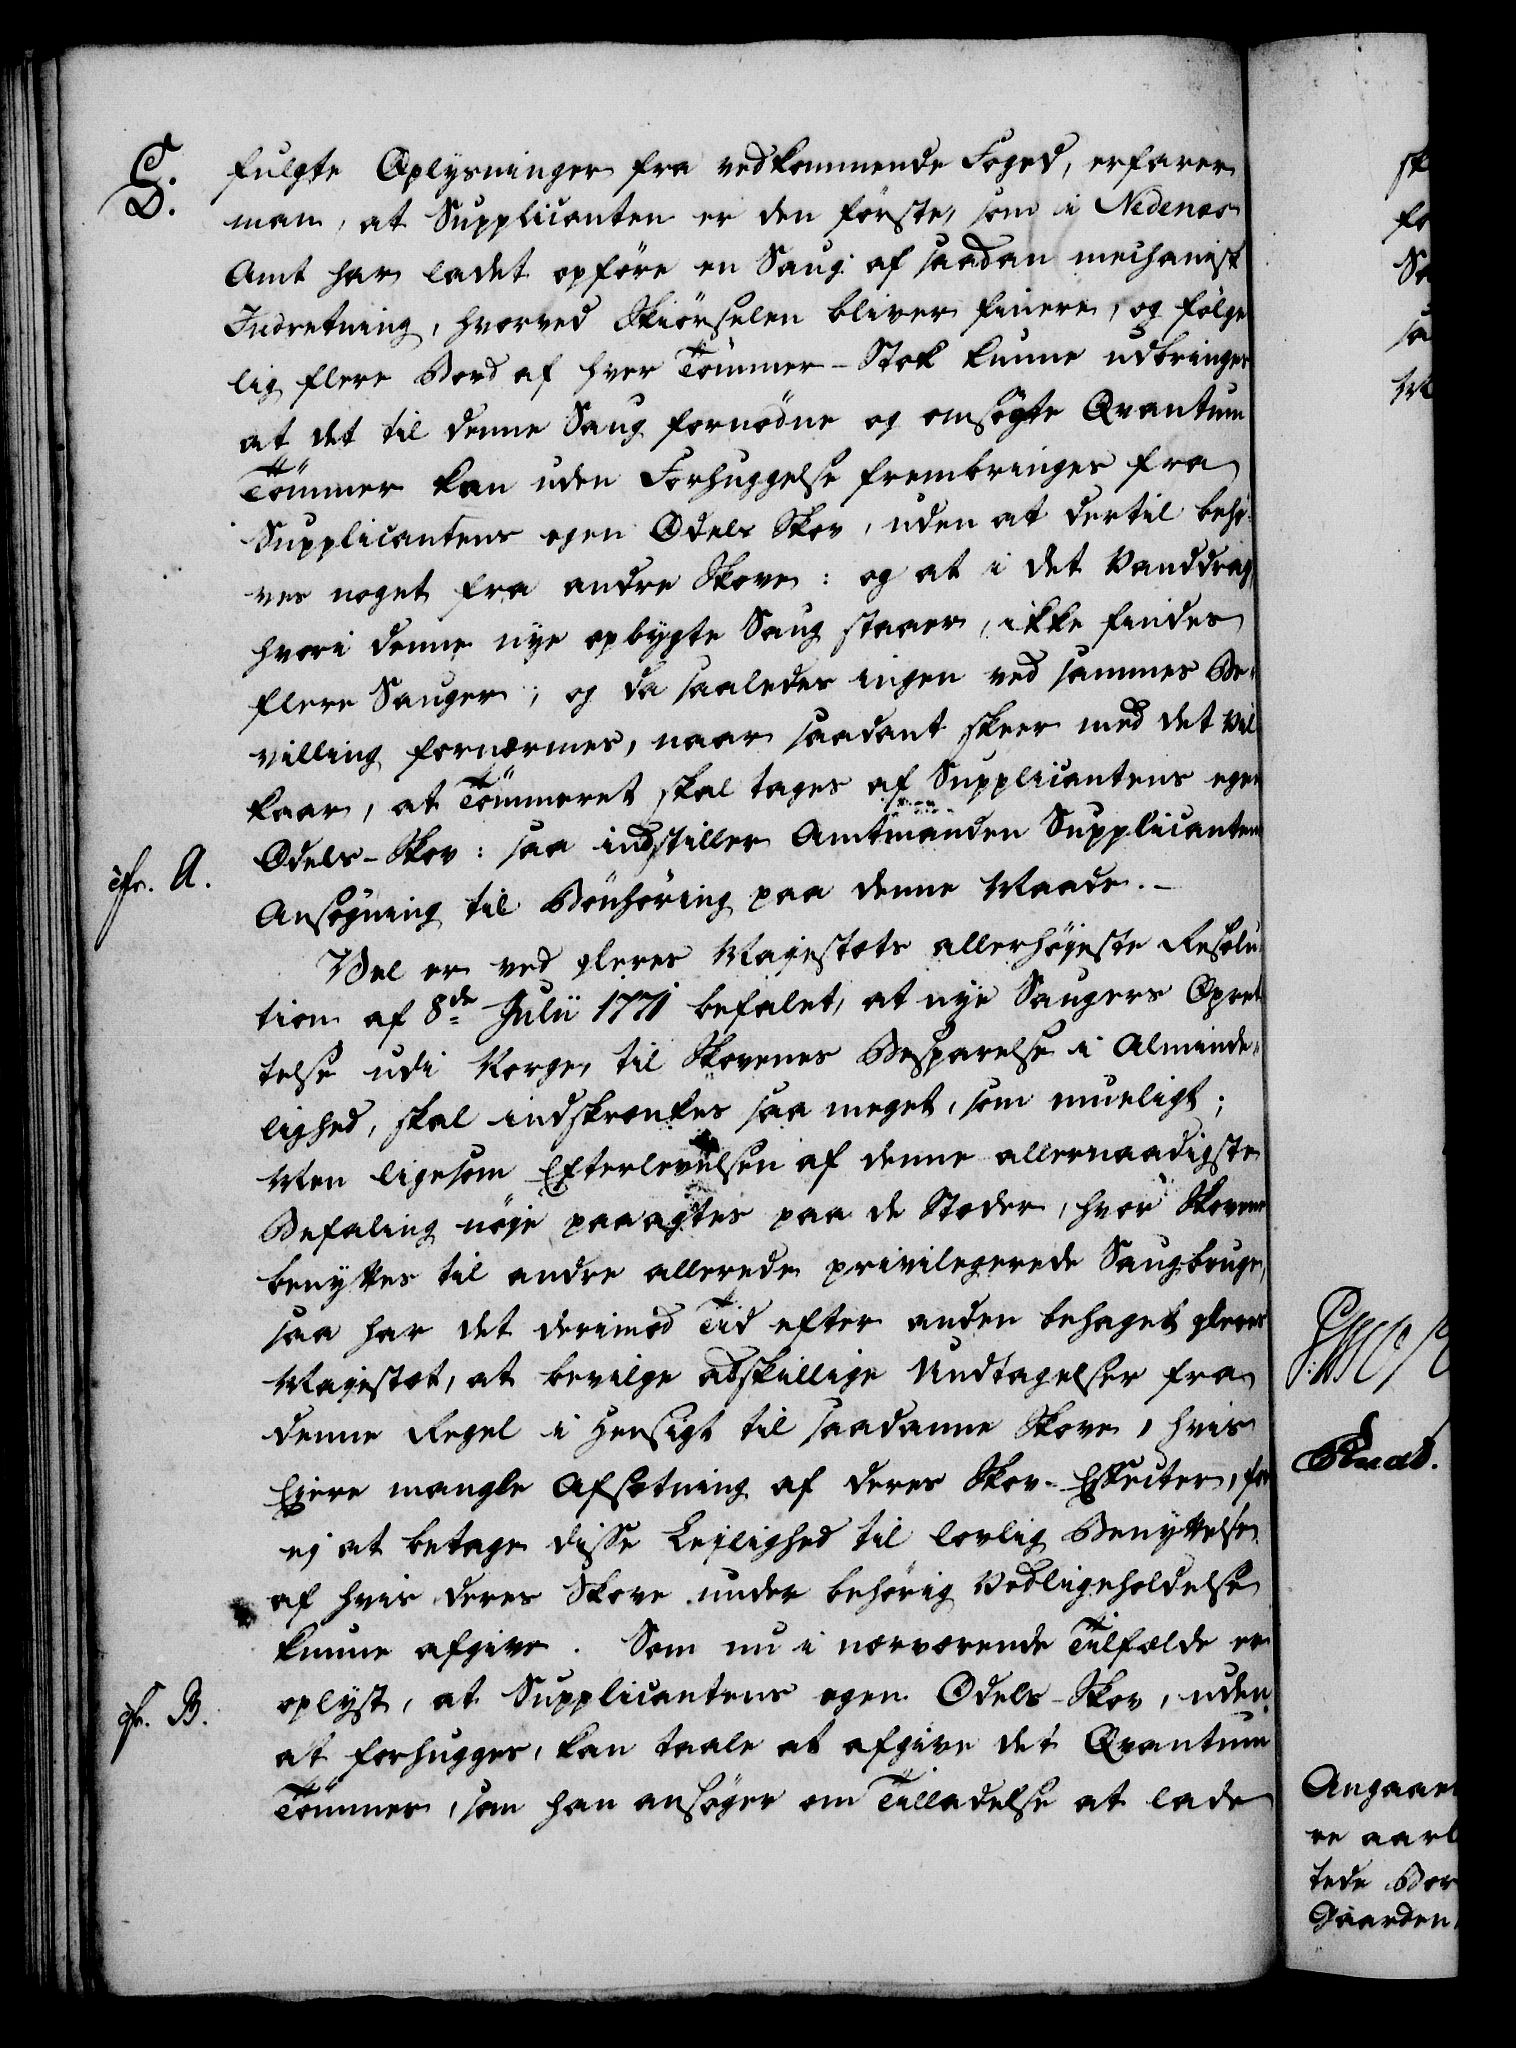 C.
D.
fulgte Oplysninger fra vedkommende Foged, erfarer
man, at Supplicanten er den förste, som i Nedenæs
Amt har ladet opføre en Saug af saadan mechanisk
Indretning, hvorved Skiörselen bliver finere, og fölge
lig flere Bord af hver Tömmer-Stok kunne udbringes
at det til denne Saug fornödne og omsögte Qvantum
Tömmer kan uden Forhuggelse frembringes fra
Supplicantens egen Odels Skov, uden at dertil behö-
ves noget fra andre Skove: og at i det Vanddrag,
hvori denne nye opbygte Saug staaer, ikke findes
flere Sauger; og da saaledes ingen ved sammes Be-
villing fornærmes, naar saadant skeer med det Vil
kaar, at Tömmeret skal tages af Supplicantens egen
Odels-Skov: saa indstiller Amtmanden Supplicantens
cfr. A.
Ansögning til Bönhöring paa denne Maade.-
Vel er ved Deres Majestæts allerhöjeste Resolu
tion af 8de Julii 1771 befalet, at nye Saugers Opret
telse udi Norge, til Skovenes Besparelse i Alminde-
lighed, skal indskrænkes saa meget, som mueligt;
Men ligesom Efterlevelsen af denne allernaadigste
Befaling nöje paaagtes paa de Stæder, hvor Skovene
benyttes til andre allerede privilegerede Saugbruge,
saa har det derimod Tid efter anden behaget Deres
Majestæt, at bevilge adskillige Undtagelser fra
denne Regel i Hensigt til saadanne Skove, hvis
Eiere mangle Afsætning af deres Skov-Effecter, for
ej at betage disse Lejlighed til lovlig Benyttelse
af hvis deres Skove under behörig Vedligeholdelse
kunne afgive. Som nu i nærværende Tilfælde er
cfr. B.
oplyst, at Supplicantens egen Odels-Skov, uden
at forhugges, kan taale at afgive det Qvantum
Tömmer, som han ansöger om Tilladelse at lade
sk
fo
Sa
sa
Angaaen
re aarl
tede Bor
Gaarden